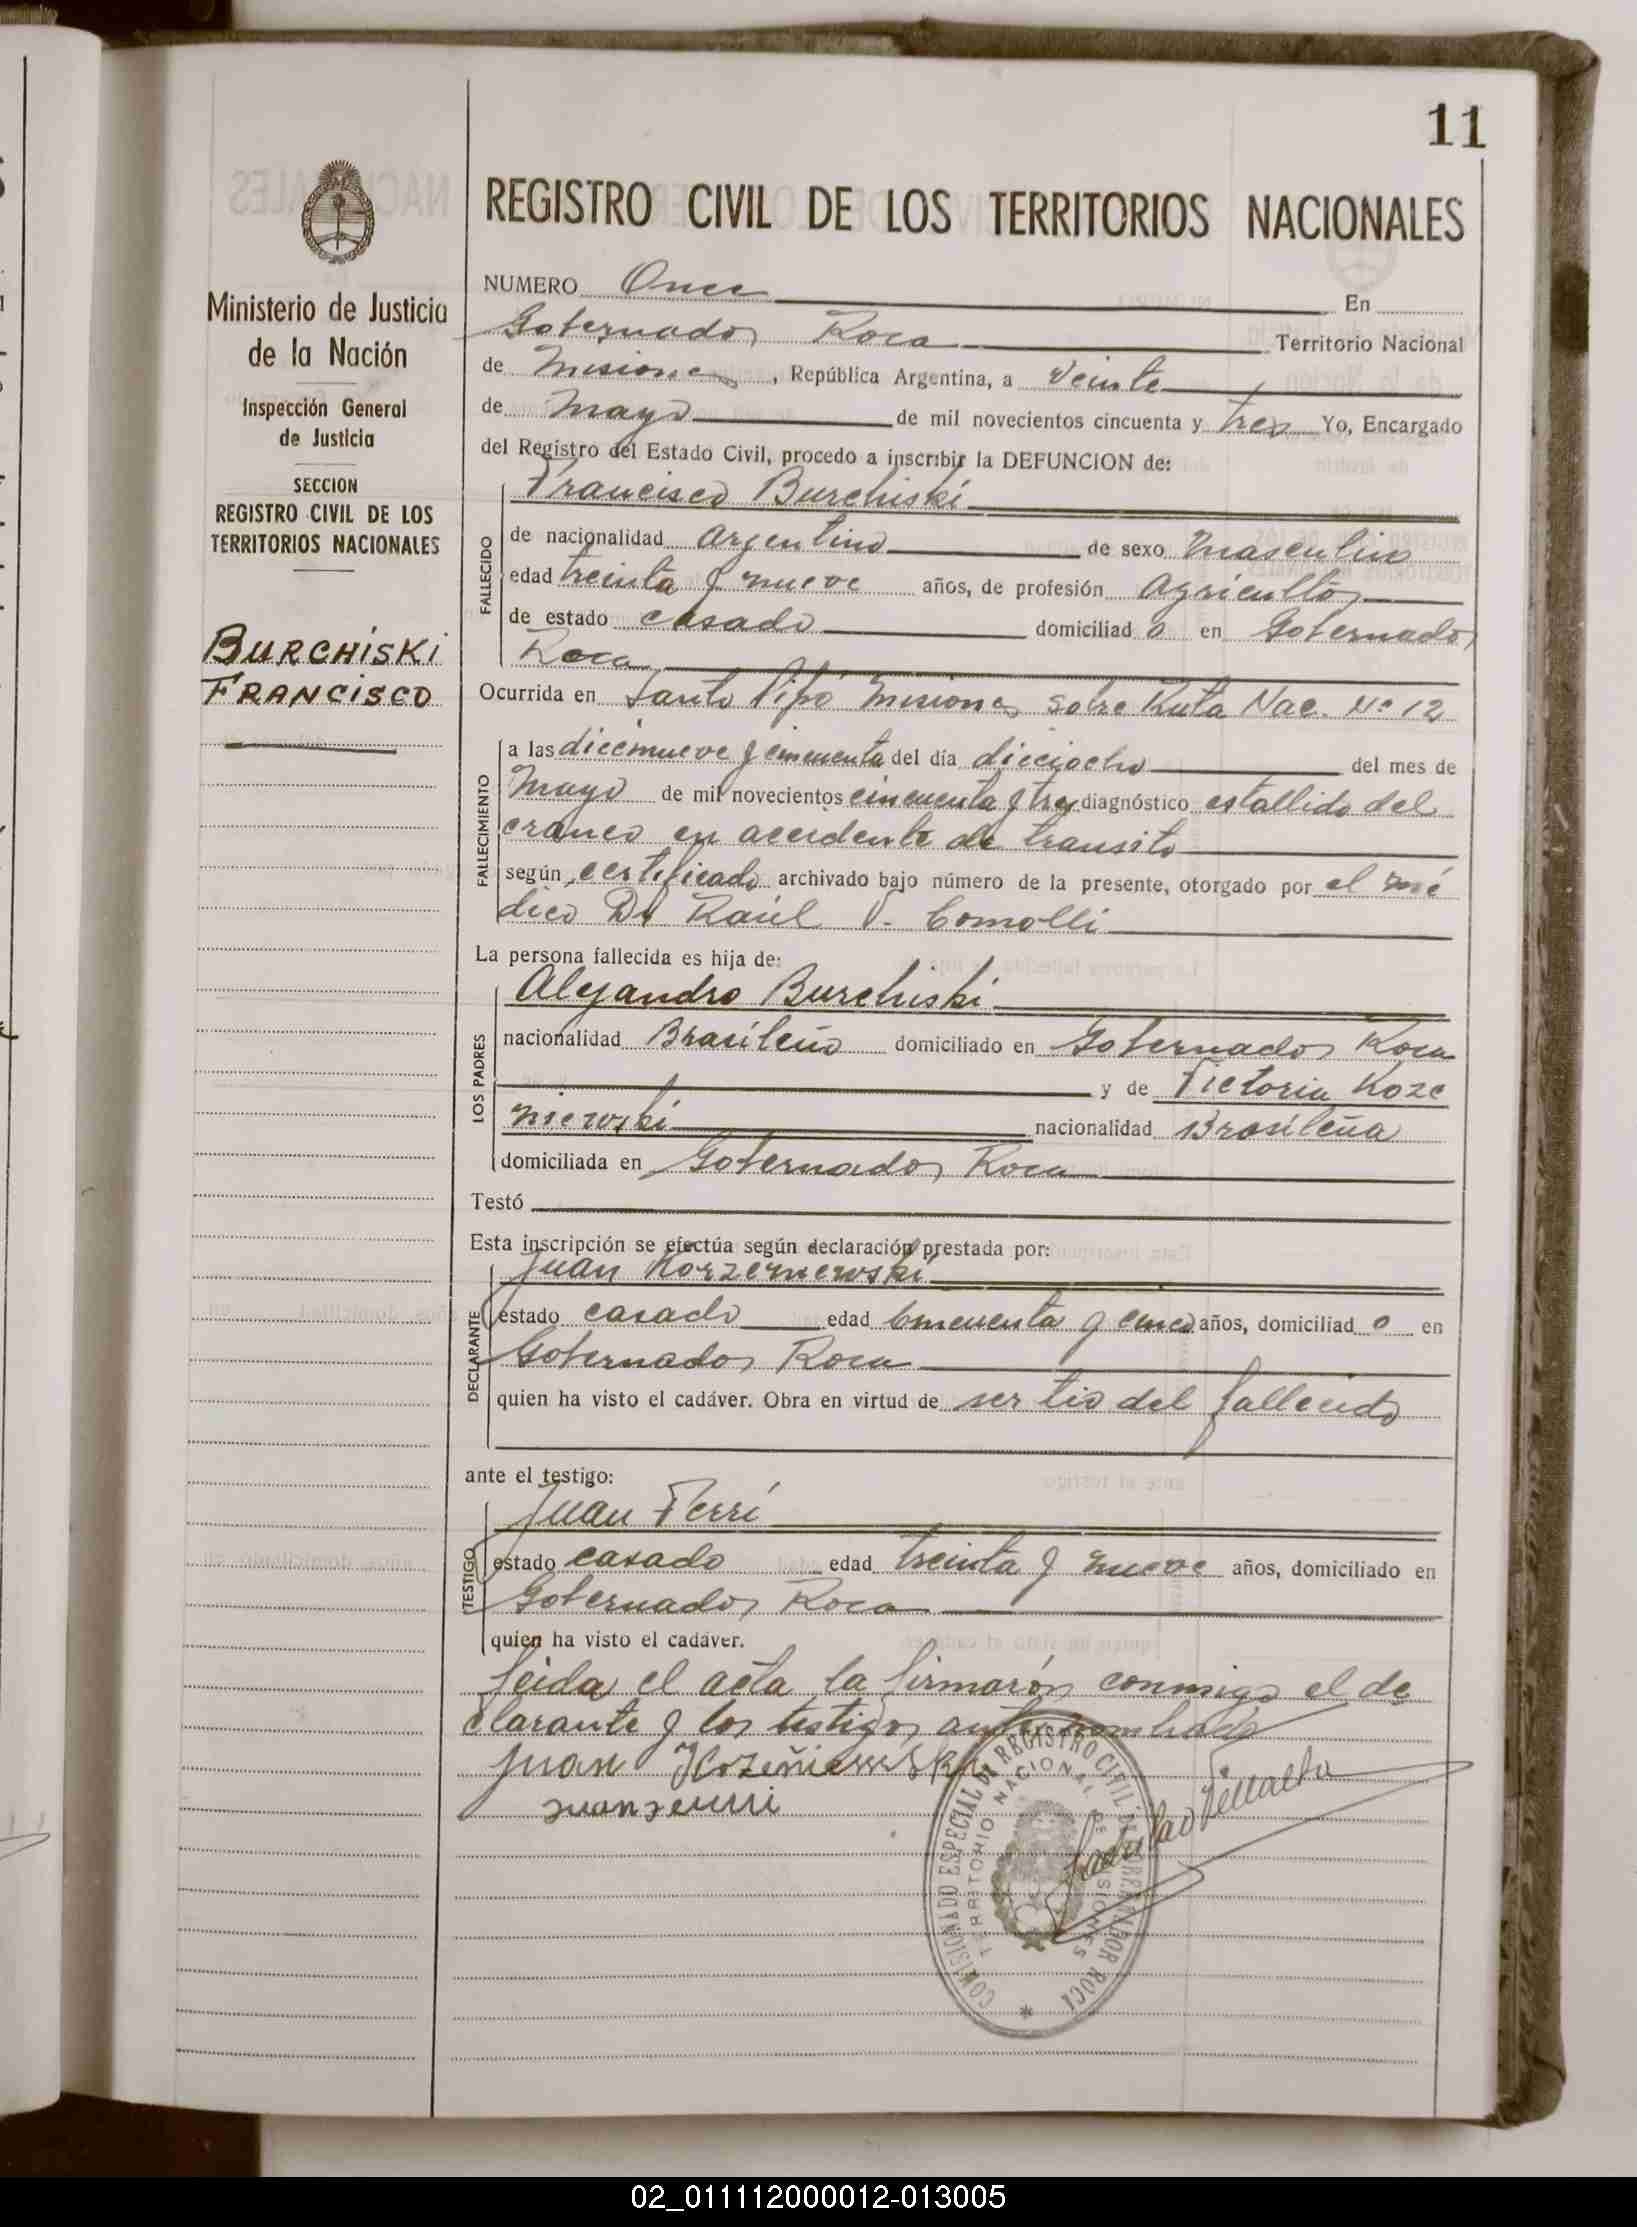 11
REGISTRO CIVIL DE LOS TERRITORIOS NACIONALES
Ministerio de Justicia
de la Nación
Inspección General
de Justicia
SECCION
REGISTRO CIVIL DE LOS
TERRITORIOS NACIONALES
BURCHISKI
FRANCISCO
NUMERO Once En
Gobernador Roca Territorio Nacional
de Misiones, República Argentina, a veinte
de Mayo de mil novecientos cincuenta y tres Yo, Encargado
del Registro del Estado Civil, procedo a inscribir la DEFUNCION de:
Francisco Burchiski
FALLECIDO
de nacionalidad argentino de sexo masculino
edad treinta y nueve años, de profesión agricultor
de estado casado domiciliad o en Gobernador
Roca
Ocurrida en Santo Pipó Misiones sobre Ruta Nac. Nº 12
FALLECIMIENTO
a las diecinueve y cincuenta del día dieciocho del mes de
Mayo de mil novecientos cincuenta y tres diagnóstico estallido del
craneo en accidente de transito
según certificado archivado bajo número de la presente, otorgado por el mé
dico Dr Raúl V. Comolli
La persona fallecida es hija de:
LOS PADRES
Alejandro Burchiski
nacionalidad Brasileño domiciliado en Gobernador Roca
y de Victoria Koze
niewski nacionalidad Brasileña
domiciliada en Gobernador Roca
Testó
Esta inscripción se efectúa según declaración prestada por:
DECLARANTE
Juan Korzeniewski
estado casado edad Cincuenta y cinco años, domiciliad o en
Gobernador Roca
quien ha visto el cadáver. Obra en virtud de ser tio del fallecido
ante el testigo:
TESTIGO
Juan Ferri
estado casado edad treinta y nueve años, domiciliado en
Gobernador Roca
quien ha visto el cadáver.
Leida el acta la firmarón conmigo el de
clarante y los testigos ante nombrado
Juan Kozeñiewski
juan ferri
COMISIONADO ESPECIAL DE REGISTRO CIVIL GOBERNADOR ROCA
TERRITORIO NACIONAL DE MISIONES
Villalba
02_011112000012-013005